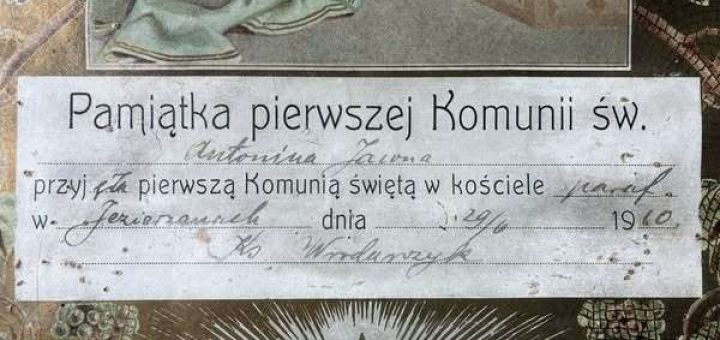 Pamiątka pierwszej Komunii św.
Antonina Jawna
przyjęła pierwszą Komunią świętą w kościele paraf.
w Jezierzanach dnia 29/6 1910.
Ks Wrodarczyk